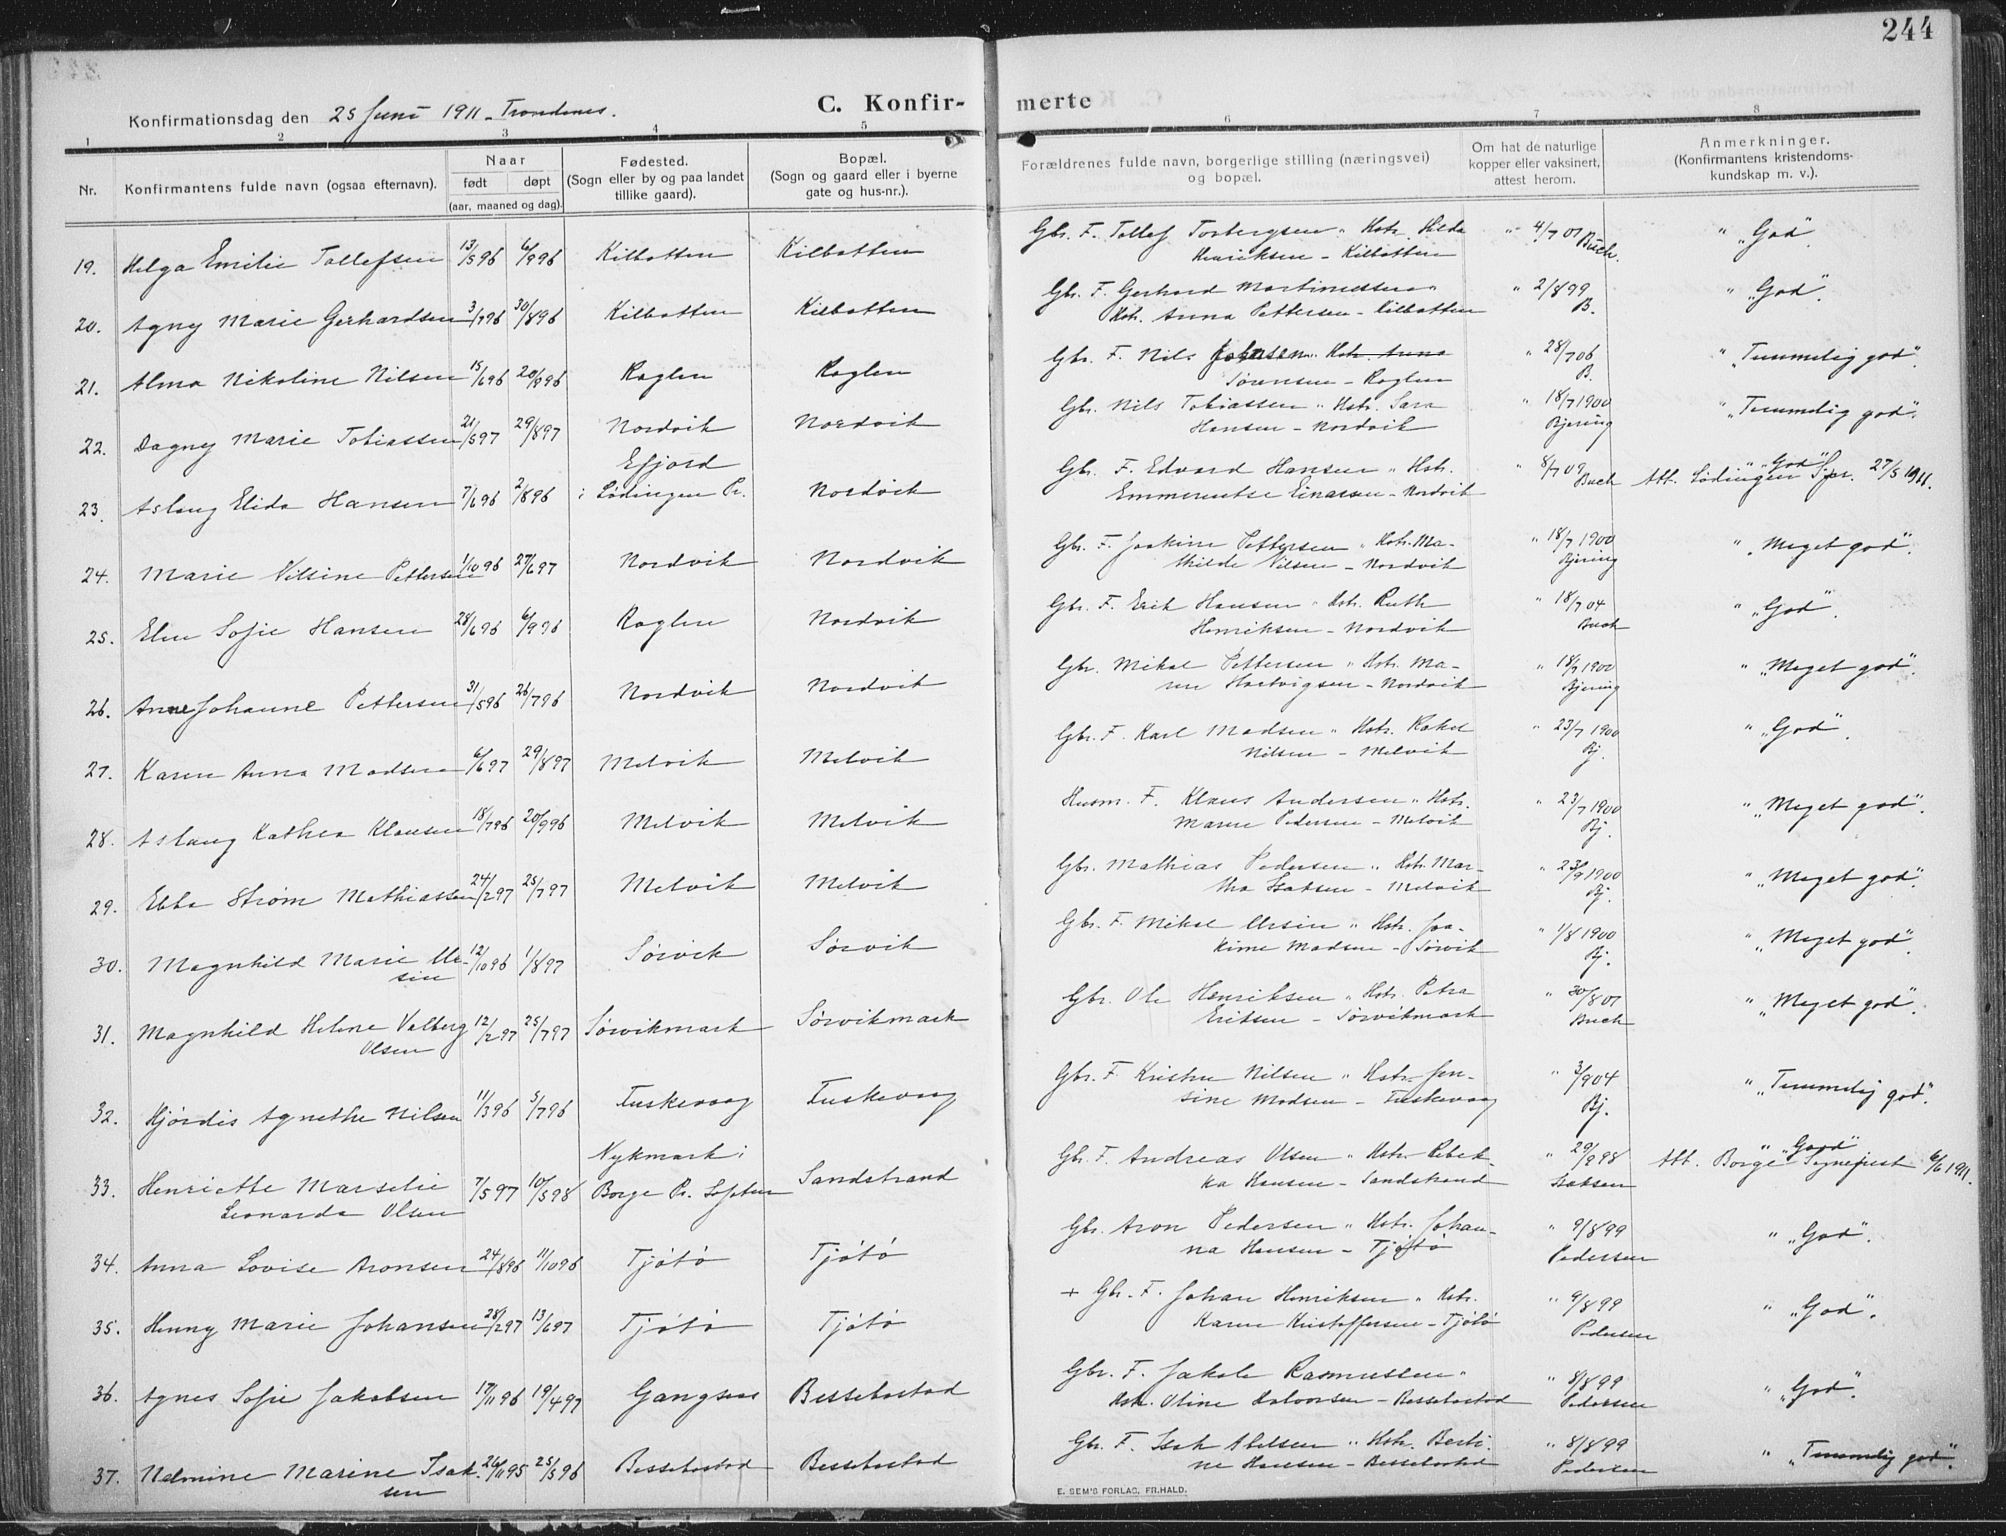 244
Konfirmationsdag den 25 Juni 1911 - Trondenes.
C. Konfir-
merte
1 2 3 4 5 6 7 8
Nr.
Konfirmantens fulde navn (ogsaa efternavn).
Naar
født døpt
(aar, maaned og dag).
Fødested.
(Sogn eller by og paa landet
tillike gaard).
Bopæl.
(Sogn og gaard eller i byerne
gate og hus-nr.).
Forældrenes fulde navn, borgerlige stilling (næringsvei)
og bopæl.
Om hat de naturlige
kopper eller vaksinert,
attest herom.
Anmerkninger.
(Konfirmantens kristendoms-
kundskap m. v.).
19. Helga Emilie Tollefsen 13/5 96 6/9 96 Kilbotten Kilbotten Gbr. F. Tollef Torbergsen " Hstr. Hilda " 4/7 01 Buch. " "God".
Henriksen - Kilbotten
20. Agny Marie Gerhardsen 3/7 96 30/8 96 Kilbotten Kilbotten Gbr. F. Gerhard Martinussen " " 2/8 99 " "God".
Hstr. Anna Pettersen - Kilbotten B.
21. Alma Nikoline Nilsen 15/6 96 20/9 96 Roglen Roglen Gbr. F. Nils Johnsen " Hstr. Anna " 28/7 06 " "Temmelig god".
Sørensen - Roglen B.
22. Dagny Marie Tobiassen 21/5 97 29/8 97 Nordvik Nordvik Gbr. Nils Tobiassen " Hstr. Sara " 18/7 1900 " "Temmelig god".
Hansen - Nordvik Bjering
23. Aslaug Elida Hansen 7/6 96 2/8 96 Efjord Nordvik Gbr. F. Edvard Hansen " Hstr. " 8/7 09 " "God"
i Lødingen Pr. Emmerentse Einarsen - Nordvik Buch Att. Lødingen Spr. 27/5 1911.
24. Marie Nilsine Pettersen 1/10 96 27/6 97 Nordvik Nordvik Gbr. F. Joakim Pettersen " Hstr. Ma- " 18/7 1900 " "Meget god".
thilde Nilsen - Nordvik Bjering
25. Elen Sofie Hansen 28/6 96 6/9 96 Roglen Nordvik Gbr. F. Erik Hansen " Hstr. Ruth " 18/7 04 " "God".
Henriksen - Nordvik Buch
26. Anne Johanne Pettersen 31/5 96 26/7 96 Nordvik Nordvik Gbr. Mikal Pettersen " Hstr. Ma- " 18/7 1900 " "Meget god".
ren Hartvigsen - Nordvik Bjering
27. Karen Anna Madsen 6/6 97 29/8 97 Melvik Melvik Gbr. F. Karl Madsen " Hstr. Rakel " 23/7 1900 " "God".
Nilsen - Melvik Bj.
28. Aslaug Kathea Klausen 18/7 96 20/9 96 Melvik Melvik Husm. F. Klaus Andersen " Hstr. " 23/7 1900 " "Meget god".
Maren Pedersen - Melvik Bj.
29. Ebba Strøm Mathiassen 24/2 97 25/7 97 Melvik Melvik Gbr. Mathias Pedersen " Hstr. Mar- " 23/9 1900 " "Meget god".
tha Isaksen - Melvik Bj.
30. Magnhild Marie Ur- 12/10 96 1/8 97 Sørvik Sørvik Gbr. F. Mikal Ursin " Hstr. Joa- " 1/8 1900 " "Meget god".
sin kime Madsen - Sørvik Bj.
31. Magnhild Helene Valberg 12/2 97 25/7 97 Sørvikmark Sørvikmark Gbr. Ole Henriksen " Hstr. Petra " 30/8 01 " "Meget god".
Olsen Eriksen - Sørvikmark Buch
32. Hjørdis Agnethe Nilsen 11/3 96 5/7 96 Fuskevaag Fuskevaag Gbr. F. Kristen Nilsen " Hstr. Jen- " 3/9 04 " "Temmelig god".
sine Madsen - Fuskevaag Bj.
33. Henriette Marselie 7/5 97 10/5 98 Nykmark i Sandstrand Gbr. F. Andreas Olsen " Hstr. Rebek- " 29/9 98 " "God"
Leonarda Olsen Borge Pr. Lofoten ka Hansen - Sandstrand Isaksen Att. Borge Sognepræst 6/6 1911.
34. Anna Lovise Aronsen 24/8 96 11/10 96 Tjøtø Tjøtø Gbr. Aron Pedersen " Hstr. Johan- " 9/8 99 " "God".
na Hansen - Tjøtø Pedersen
35. Henny Marie Johansen 28/2 97 13/6 97 Tjøtø Tjøtø + Gbr. F. Johan Henriksen " Hstr. " 9/8 99 " "God".
Karen Kristoffersen - Tjøtø Pedersen
36. Agnes Sofie Jakobsen 17/11 96 19/4 97 Gangsaas Bessebostad Gbr. F. Jakob Rasmussen " " 8/8 99 " "God".
Hstr. Oline Halvorsen - Bessebostad Pedersen
37. Helmine Marine Isak- 26/11 95 25/5 96 Bessebostad Bessebostad Gbr. F. Isak Nilsen " Hstr. Berti- " 8/8 99 " "Temmelig god".
sen ne Hansen - Bessebostad Pedersen
E. SEM'S FORLAG, FR.HALD.